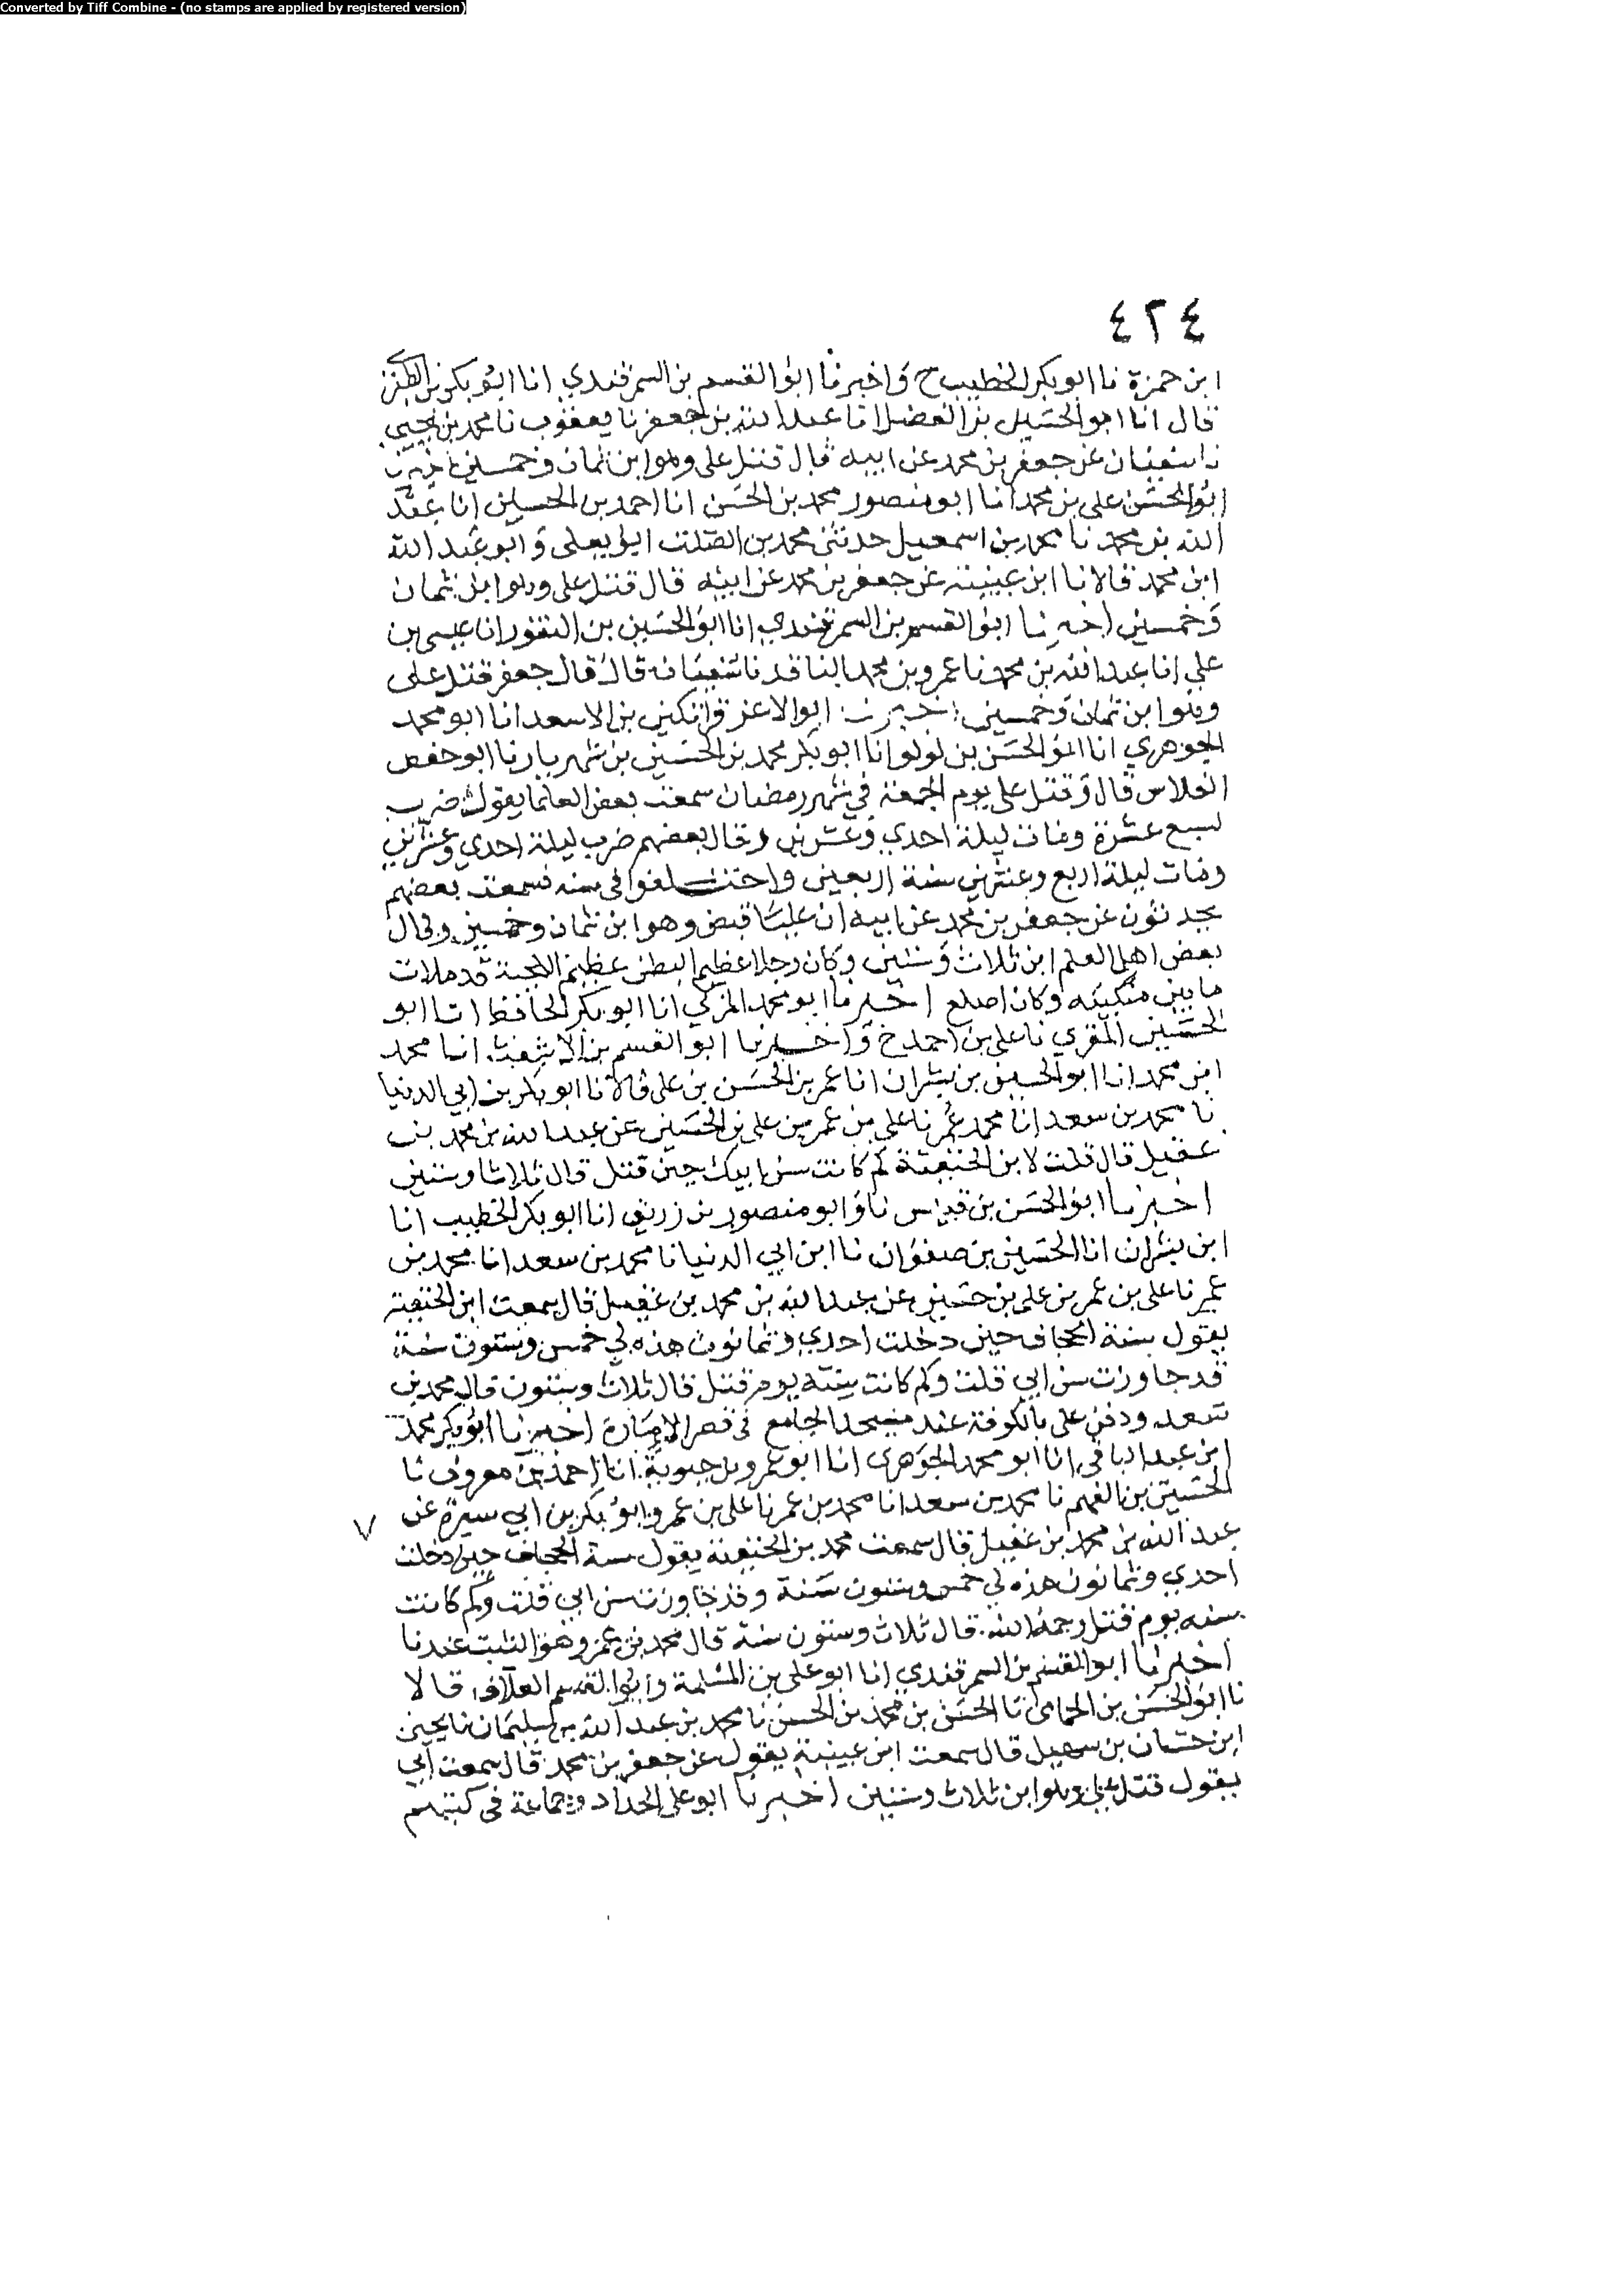 Converted by Tiff Combine - (no stamps are applied by registered version)
٤٢٤
ابن حمزة نا ابو بكر الخطيب ح واخبرنا ابو القسم بن السمرقندي انا ابو بكر بن الطبري
قال انا ابو الحسين بن الفضل انا عبد الله بن جعفر نا يعقوب نا محمد بن يحيى
نا سفيان عن جعفر بن محمد عن ابيه قال قتل علي وهو ابن ثمان وخمسين اخبرنا
ابو الحسن علي بن محمد انا ابو منصور محمد بن الحسن انا احمد بن الحسين انا عبد
الله بن محمد نا محمد بن اسمعيل حدثني محمد بن الصلت ابو يعلى وابو عبد الله
ابن محمد قالا نا ابن عيينة عن جعفر بن محمد عن ابيه قال قتل علي وهو ابن ثمان
وخمسين اخبرنا ابو القسم بن السمرقندي انا ابو الحسين بن النقور انا عيسى بن
علي انا عبد الله بن محمد نا عمرو بن محمد الناقد نا سفيان قال قال جعفر قتل علي
وهو ابن ثمان وخمسين اخبرنا ابو الاعز قراتكين بن الاسعد انا ابو محمد
الجوهري انا ابو الحسن بن لولو انا ابو بكر محمد بن الحسين بن شهريار نا ابو حفص
الفلاس قال وقتل علي يوم الجمعة في شهر رمضان سمعت بعض العلما يقول ضرب
لسبع عشرة ومات ليلة احدي وعشرين وقال بعضهم ضرب ليلة احدي وعشرين
ومات ليلة اربع وعشرين سنة اربعين واختلفوا في سنه فسمعت بعضهم
يحدثون عن جعفر بن محمد عن ابيه ان عليا قبض وهو ابن ثمان وخمسين وقال
بعض اهل العلم ابن ثلاث وستين وكان رجلا عظيم البطن عظيم اللحية قد ملات
ما بين منكبيه وكان اصلع اخبرنا ابو محمد المزكي انا ابو بكر الحافظ انا ابو
الحسين المقري نا علي بن احمد ح واخبرنا ابو القسم بن الاشعث انا محمد
ابن محمد انا ابو الحسين بن بشران انا عمر بن الحسن بن علي قالا نا ابو بكر بن ابي الدنيا
نا محمد بن سعد انا محمد عمر نا علي بن عمر بن علي بن الحسين عن عبد الله بن محمد بن
عقيل قال قلت لابن الحنفية كم كانت سن ابيك حين قتل قال ثلاثا وستين
اخبرنا ابو الحسن بن قبيس نا وابو منصور بن زريق انا ابو بكر الخطيب انا
ابن بشران انا الحسين بن صفوان نا ابن ابي الدنيا نا محمد بن سعد انا محمد بن
عمر نا علي بن عمر بن علي بن حسين عن عبد الله بن محمد بن عقيل قال سمعت ابن الحنفية
يقول سنة الجحاف حين دخلت احدي وثمانون هذه لي خمس وستون سنة
قد جاوزت سن ابي قلت وكم كانت سنه يوم قتل قال ثلاث وستون قال محمد بن
سعد ودفن علي بالكوفة عند مسجد الجامع في قصر الامارة اخبرنا ابو بكر محمد
ابن عبد الباقي انا ابو محمد الجوهري انا ابو عمر بن حيوية انا احمد بن معروف نا
الحسين بن الفهم نا محمد بن سعد انا محمد بن عمر نا علي بن عمر وابو بكر بن ابي سبرة عن
عبد الله بن محمد بن عقيل قال سمعت محمد بن الحنفية يقول سنة الجحاف حين دخلت
احدي وثمانون هذه لي خمس وستون سنة وقد جاوزت سن ابي قلت وكم كانت
سنه يوم قتل رحمه الله قال ثلاث وستون سنة قال محمد بن عمر وهو الثبت عندنا
اخبرنا ابو القسم بن السمرقندي انا ابو علي بن المسلمة وابو القسم العلاف قالا
نا ابو الحسن بن الحمامي نا الحسن بن محمد بن الحسن نا محمد بن عبد الله بن سليمان نا يحيى
ابن حسان بن سهيل قال سمعت ابن عيينة يقول عن جعفر بن محمد قال سمعت ابي
يقول قتل علي وهو ابن ثلاث وستين اخبرنا ابو علي الحداد وجماعة في كتبهم